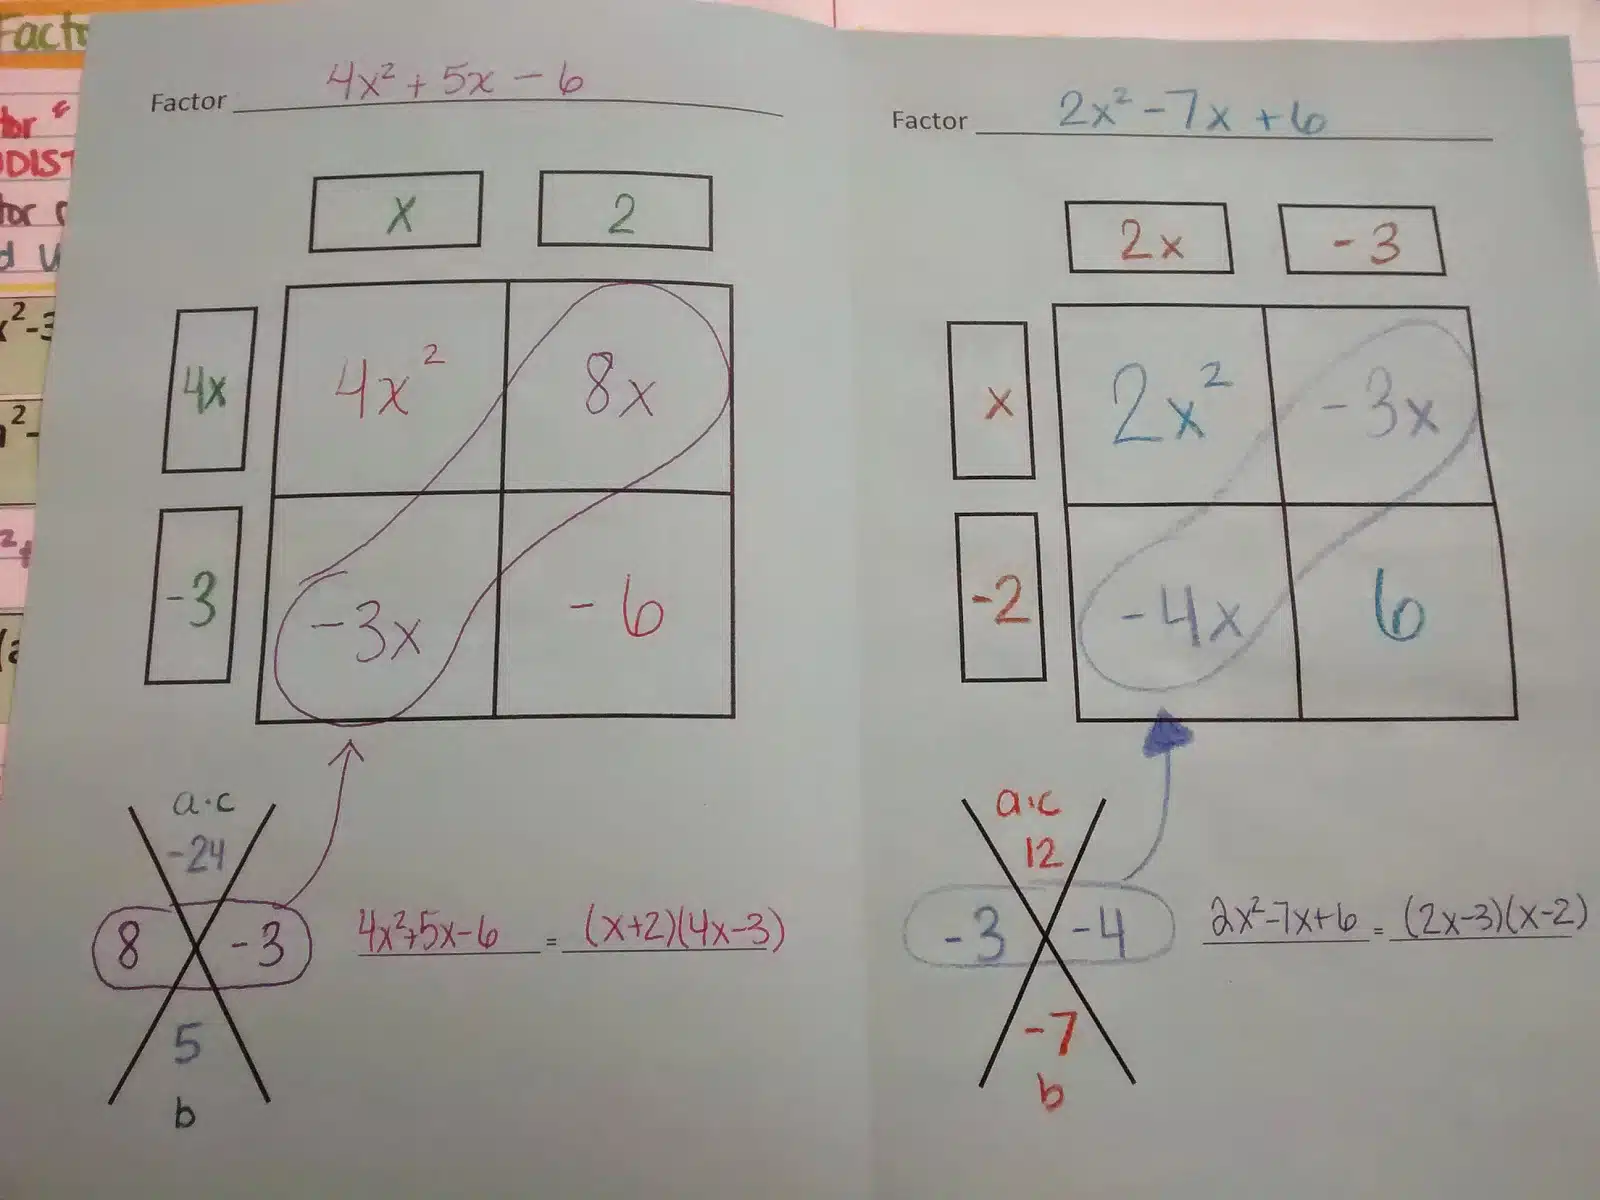 Facto
tor &
DIST
tor
d
x²-3
²-
²+
(a
Factor 4x² + 5x - 6
x 2
4x 4x² 8x
-3 -3x -6
a·c
-24
8 -3
5
b
4x²+5x-6 = (x+2)(4x-3)
Factor 2x² - 7x + 6
2x -3
x 2x² -3x
-2 -4x 6
a·c
12
-3 -4
-7
b
2x²-7x+6 = (2x-3)(x-2)